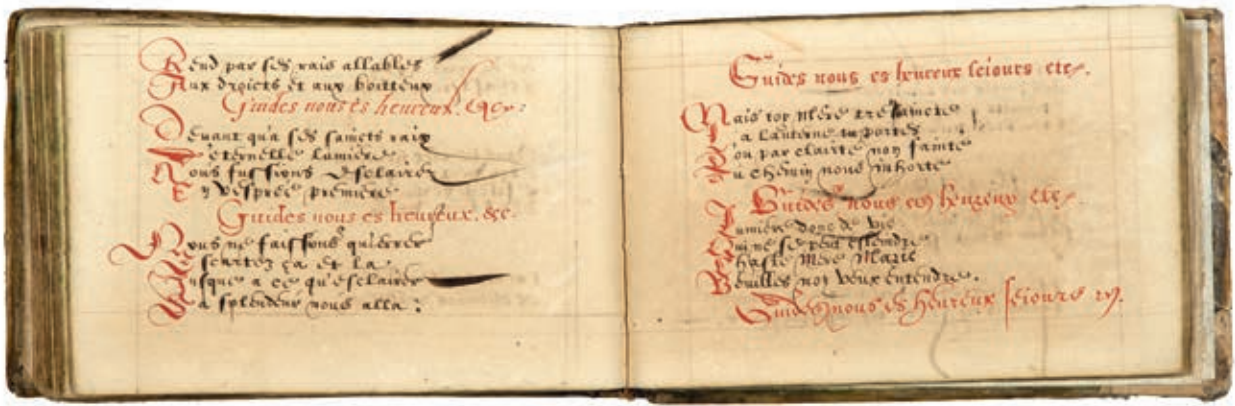 Rend par ses rais allables
Aux droicts et aux boitteux
Guides nous es heureux. &c:
Devant qu'a ses saincts raix
L'eternelle lumiere
Nous fussions esclairez
En vespree premiere
Guides nous es heureux. &c.
Nous ne faissons qu'errer
Escartez ça et la
Jusque a ce qu'esclairer
Sa splendeur nous alla:
Guides nous es heureux seiours etc.
Mais toy Mere tressaincte
La lanterne tu portes
Qui par clairté non fainte
Au chemin nous inhorte
Guides nous es heureux etc.
Lumiere donc de vie
Qui ne se peut estendre
Chaste Mere Marie
Veuilles noz veux entendre.
Guides nous es heureux seiours